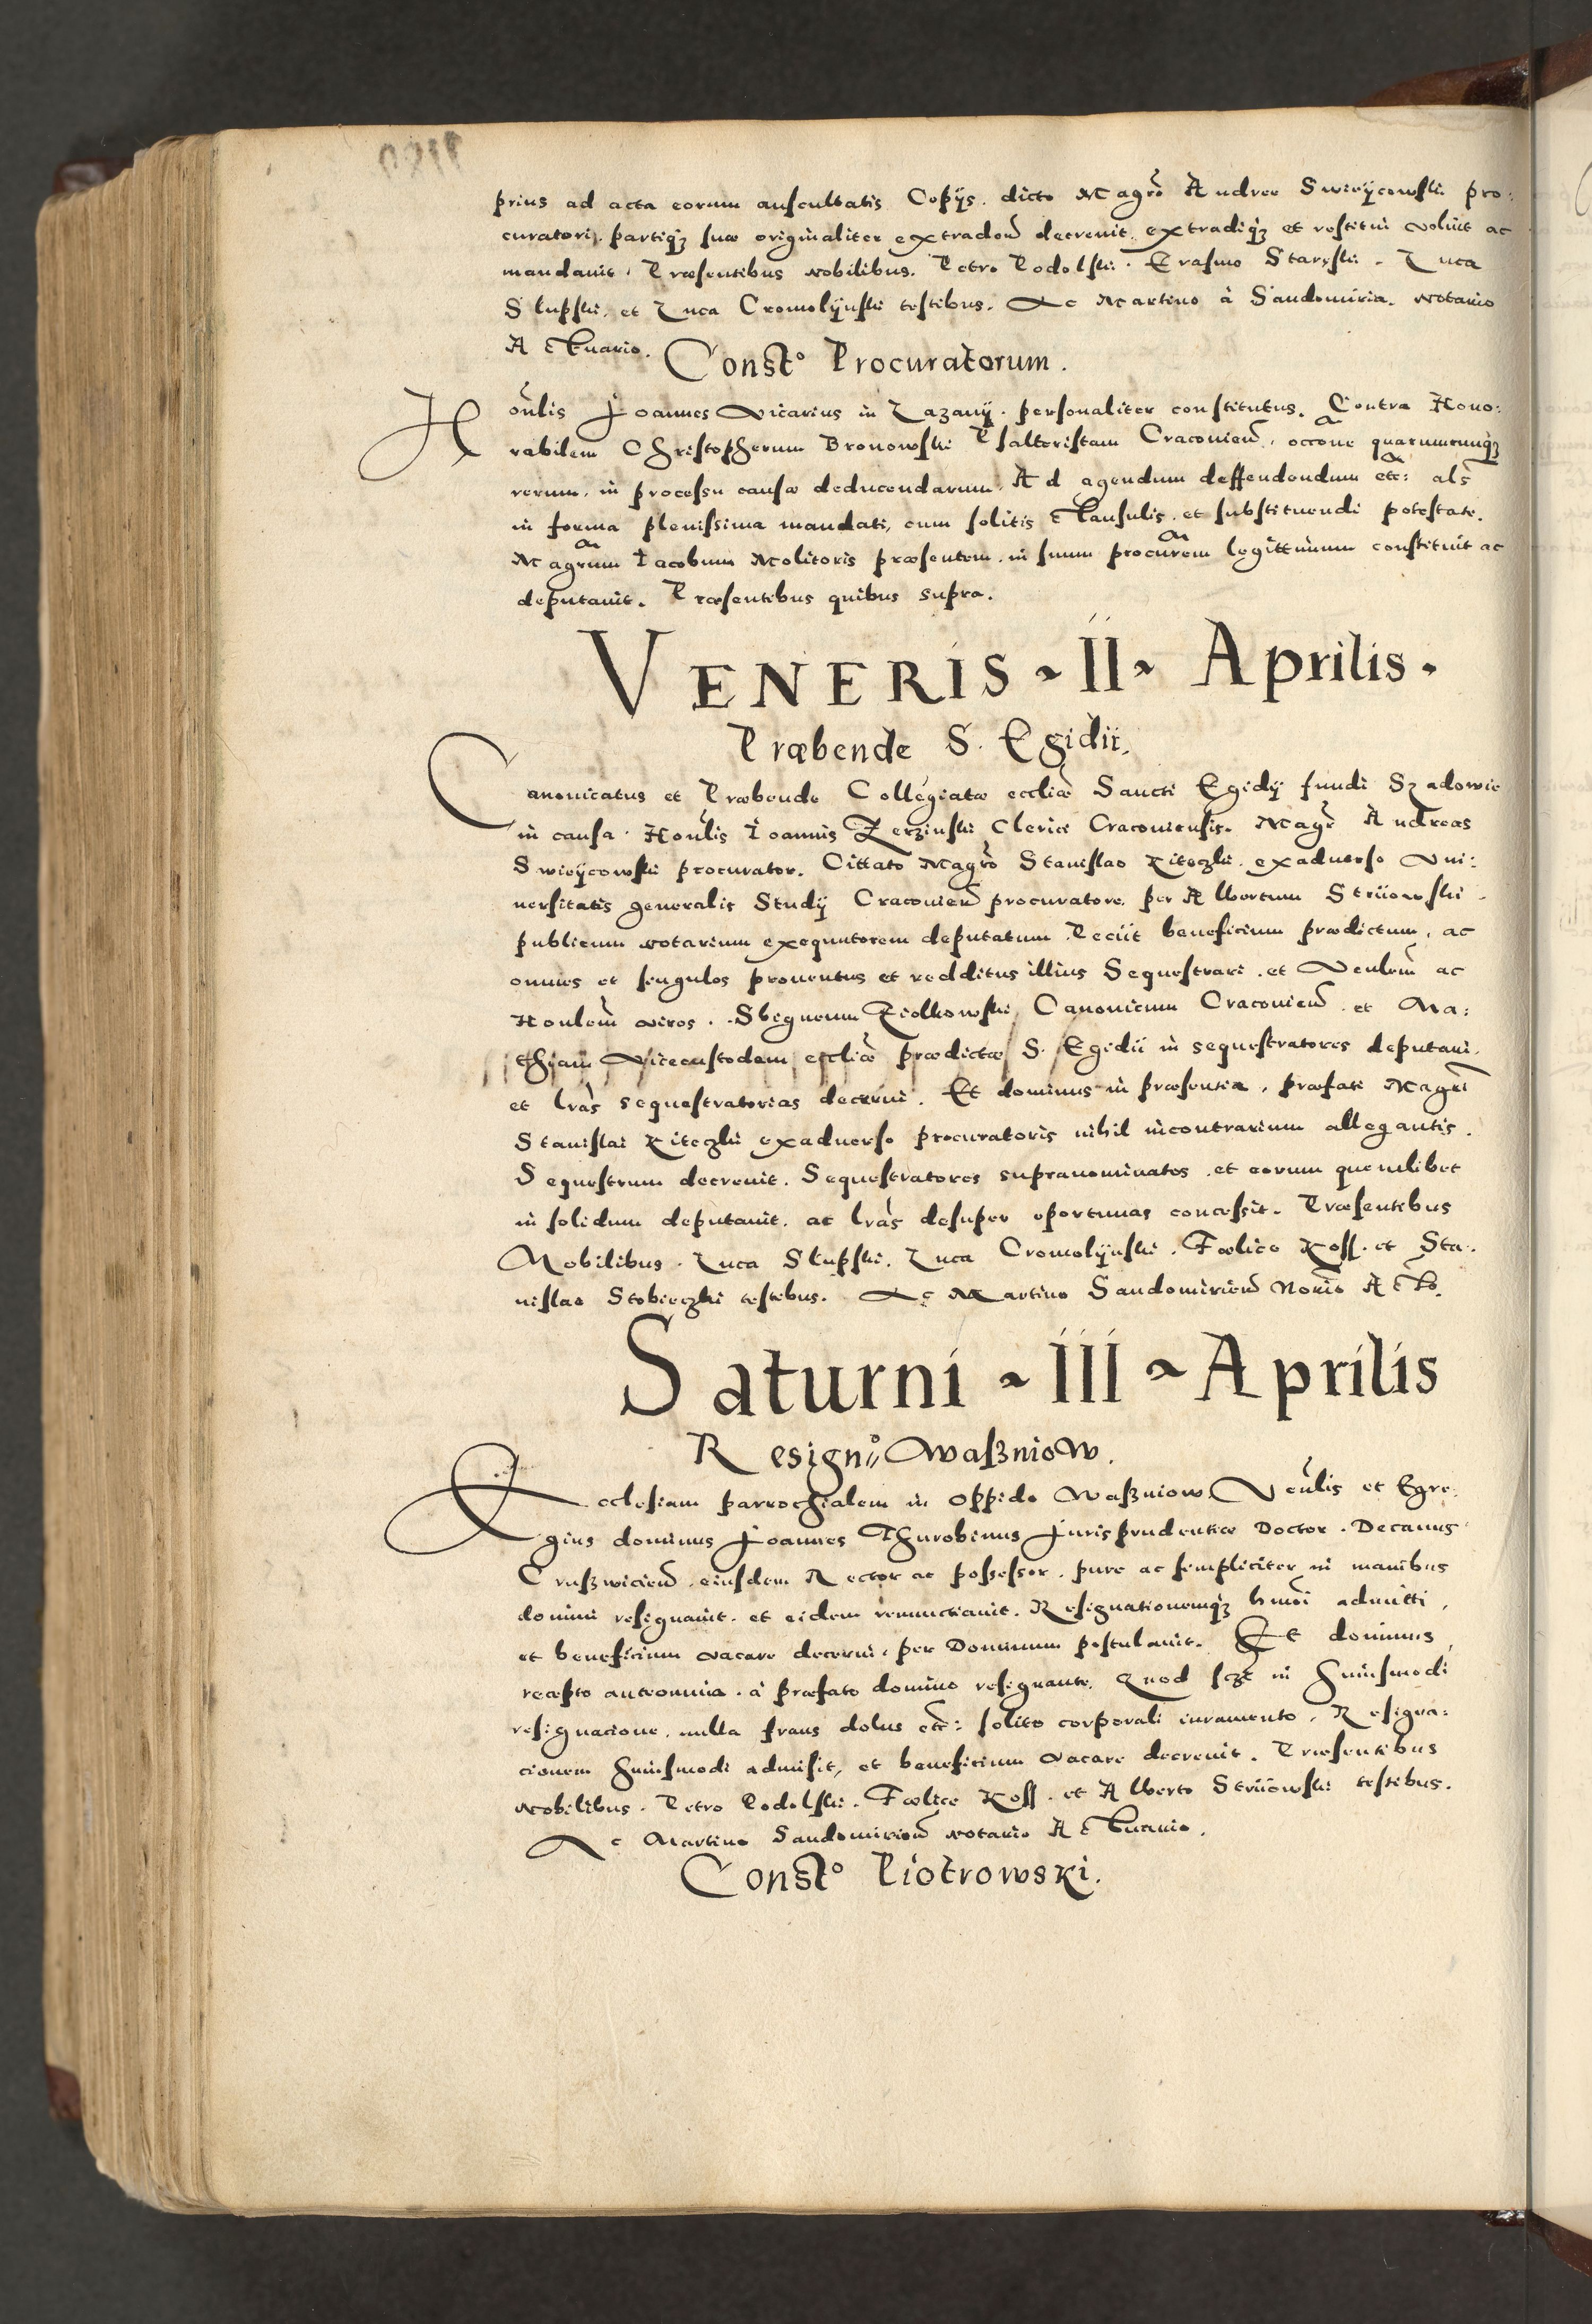 prius ad acta eorum auscultatis Copijs. dicto Magrō Andree Swieÿcowski pro:
curatori, partiqȝ suæ originaliter extradend decrevit, extradiqȝ et restitui voluit ac
mandavit. Præsentibus nobilibus. Petro Podolski. Erasmo Starÿski. Luca
Slupski, et Luca Cromolÿnski testibus. Ac Martino à Sandomiria. notario
Actuario.
Constº Procuratorum.
Honlis Joannes vicarius in Lazanÿ. personaliter constitutus. Contra Hono:
rabilem Christopherum Bronowski Psalteristam Cracovien, occōne quarumcunqȝ
rerum, in processu causæ deducendarum. Ad agendum deffendendum etc: als
in forma plenissima mandati, cum solitis clausulis, et substituendi potestate.
Magrum Jacobum Molitoris præsentem, in suum procurem legittimum constituit ac
deputavit. Præsentibus quibus supra.
VENERIS ~ II ~ Aprilis.
Præbende S. Egidii.
Canonicatus et Præbende Collegiatæ eccliæ Sancti Egidÿ fundi Szadowie
in causa. Honlis Joannis Zerzinski Clerici Cracoviensis. Magr Andreas
Swieÿcowski procurator. Cittato Magrō Stanislao Kiteczki. exadverso Vni:
versitatis generalis Studÿ Cracovien procuratore, per Albertum Strüowski
publicum notarium exequutorem deputatum. Peciit beneficium prædictum, ac
omnes et singulos proventus et redditus illius Sequestrari. et Venlem ac
Honlem viros. Sbigneum Ziolkowski, Canonicum Cracovien. et Ma:
thiam Vicecustodem eccliæ prædictæ S. Egidii in sequestratores deputari.
et lras sequestratorias decerni. Et dominus in præsentia, præfati Magri
Stanislai Kiteczki exadverso procuratoris nihil incontrarium allegantis.
Sequestrum decrevit. Sequestratores supranominatos. et eorum quemlibet
in solidum deputavit. ac lras desuper oportunas concessit. Præsentibus
Nobilibus. Luca Slupski. Luca Cromolÿnski. Fœlice Koss. et Sta:
nislao Stobieczki testibus. Ac Martino Sandomirien Norio Acto.
Saturni ~ III ~ Aprilis
Resignº Waßniow.
Ecclesiam parrochialem in oppido Waßniow. Venlis et Egre:
gius dominus Joannes Thurobinus Jurisprudentiæ Doctor. Decanus
Crußwicien. eiusdem Rector ac possessor. pure ac simpliciter in manibus
domini resignavit. et eidem renunctiavit. Resignationemqȝ hmōi admitti,
et beneficium vacare decerni, per Dominum postulavit. Et dominus
recepto anteomnia. à præfato domino resignante. Quod sczt in huiusmodi
resignacione, nulla fraus dolus etc: solito corporali iuramento. Resigna:
cionem huiusmodi admisit, et beneficium vacare decrevit. Præsentibus
nobilibus. Petro Podolski. Fœlice Koss. et Alberto Strüowski testibus.
Ac Martino Sandomirien notario Actuario.
Constº Piotrowski.